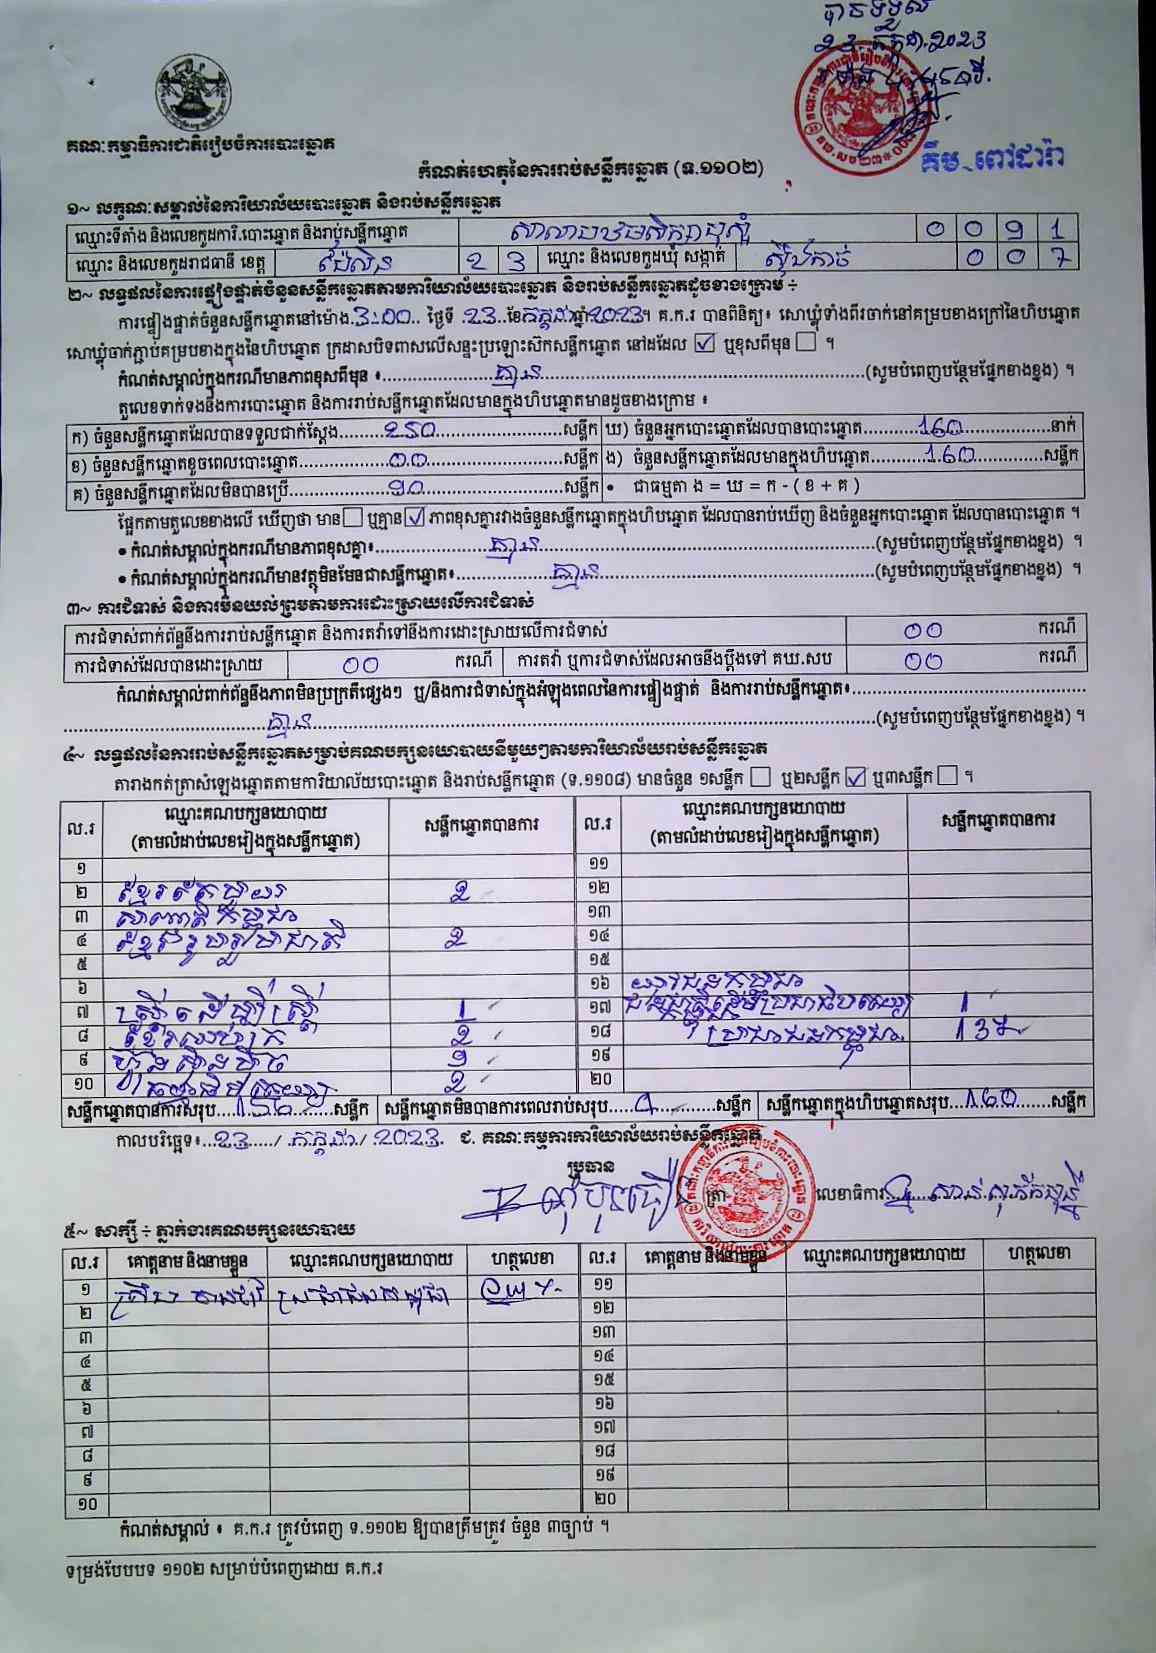 បានទទួល
23.កក្កដា.2023
គីម ពៅដារ៉ា
គណៈកម្មាធិការជាតិរៀបចំការបោះឆ្នោត
កំណត់ហេតុនៃការរាប់សន្លឹកឆ្នោត (ទ.១១០២)
១~ លក្ខណៈសម្គាល់នៃការិយាល័យបោះឆ្នោត និងរាប់សន្លឹកឆ្នោត
ឈ្មោះទីតាំង និងលេខកូដការិ.បោះឆ្នោត និងរាប់សន្លឹកឆ្នោត សាលាបឋមសិក្សា 0 0 9 1
ឈ្មោះ និងលេខកូដរាជធានី ខេត្ត ប៉ៃលិន 2 3 ឈ្មោះ និងលេខកូដឃុំ សង្កាត់ ស្ទឹងកាច់ 0 0 7
២~ លទ្ធផលនៃការផ្ទៀងផ្ទាត់ចំនួនសន្លឹកឆ្នោតតាមការិយាល័យបោះឆ្នោត និងរាប់សន្លឹកឆ្នោតដូចខាងក្រោម ÷
ការផ្ទៀងផ្ទាត់ចំនួនសន្លឹកឆ្នោតនៅម៉ោង.3:00.. ថ្ងៃទី .23..ខែកក្កដាឆ្នាំ2023។ គ.ក.រ បានពិនិត្យ៖ សោឃ្លុំទាំងពីរចាក់នៅគម្របខាងក្រៅនៃហិបឆ្នោត
សោឃ្លុំចាក់ភ្ជាប់គម្របខាងក្នុងនៃហិបឆ្នោត ក្រដាសបិទពាសលើសន្ទះប្រឡោះស៊កសន្លឹកឆ្នោត នៅដដែល ☑ ឬខុសពីមុន ☐ ។
កំណត់សម្គាល់ក្នុងករណីមានភាពខុសពីមុន ៖.....គ្មាន.....(សូមបំពេញបន្ថែមផ្នែកខាងខ្នង) ។
តួលេខទាក់ទងនឹងការបោះឆ្នោត និងការរាប់សន្លឹកឆ្នោតដែលមានក្នុងហិបឆ្នោតមានដូចខាងក្រោម ៖
ក) ចំនួនសន្លឹកឆ្នោតដែលបានទទួលជាក់ស្តែង.....250.....សន្លឹក ឃ) ចំនួនអ្នកបោះឆ្នោតដែលបានបោះឆ្នោត.....160.....នាក់
ខ) ចំនួនសន្លឹកឆ្នោតខូចពេលបោះឆ្នោត.....00.....សន្លឹក ង) ចំនួនសន្លឹកឆ្នោតដែលមានក្នុងហិបឆ្នោត.....160.....សន្លឹក
គ) ចំនួនសន្លឹកឆ្នោតដែលមិនបានប្រើ.....90.....សន្លឹក • ជាធម្មតា ង = ឃ = ក - ( ខ + គ )
ផ្អែកតាមតួលេខខាងលើ ឃើញថា មាន☐ ឬគ្មាន☑ ភាពខុសគ្នារវាងចំនួនសន្លឹកឆ្នោតក្នុងហិបឆ្នោត ដែលបានរាប់ឃើញ និងចំនួនអ្នកបោះឆ្នោត ដែលបានបោះឆ្នោត ។
• កំណត់សម្គាល់ក្នុងករណីមានភាពខុសគ្នា៖.....គ្មាន.....(សូមបំពេញបន្ថែមផ្នែកខាងខ្នង) ។
• កំណត់សម្គាល់ក្នុងករណីមានវត្ថុមិនមែនជាសន្លឹកឆ្នោត៖.....គ្មាន.....(សូមបំពេញបន្ថែមផ្នែកខាងខ្នង) ។
៣~ ការជំទាស់ និងការមិនយល់ព្រមតាមការដោះស្រាយលើការជំទាស់
ការជំទាស់ពាក់ព័ន្ធនឹងការរាប់សន្លឹកឆ្នោត និងការតវ៉ាទៅនឹងការដោះស្រាយលើការជំទាស់ 00 ករណី
ការជំទាស់ដែលបានដោះស្រាយ 00 ករណី ការតវ៉ា ឬការជំទាស់ដែលអាចនឹងប្តឹងទៅ គឃ.សប 00 ករណី
កំណត់សម្គាល់ពាក់ព័ន្ធនឹងភាពមិនប្រក្រតីផ្សេងៗ ឬ/និងការជំទាស់ក្នុងអំឡុងពេលនៃការផ្ទៀងផ្ទាត់ និងការរាប់សន្លឹកឆ្នោត៖.....
.....គ្មាន.....(សូមបំពេញបន្ថែមផ្នែកខាងខ្នង) ។
៤~ លទ្ធផលនៃការរាប់សន្លឹកឆ្នោតសម្រាប់គណបក្សនយោបាយនីមួយៗតាមការិយាល័យរាប់សន្លឹកឆ្នោត
តារាងកត់ត្រាសំឡេងឆ្នោតតាមការិយាល័យបោះឆ្នោត និងរាប់សន្លឹកឆ្នោត (ទ.១១០៨) មានចំនួន ១សន្លឹក ☐ ឬ២សន្លឹក ☑ ឬ៣សន្លឹក ☐ ។
ល.រ ឈ្មោះគណបក្សនយោបាយ (តាមលំដាប់លេខរៀងក្នុងសន្លឹកឆ្នោត) សន្លឹកឆ្នោតបានការ ល.រ ឈ្មោះគណបក្សនយោបាយ (តាមលំដាប់លេខរៀងក្នុងសន្លឹកឆ្នោត) សន្លឹកឆ្នោតបានការ
១ ១១
២ ខ្មែរតែមួយ 2 ១២
៣ កម្ពុជា ១៣
៤ ខ្មែររួបរួមជាតិ 2 ១៤
៥ ១៥
៦ ១៦ យុវជនកម្ពុជា
៧ ស្ត្រីដើម្បីស្ត្រី 1 ១៧ 1
៨ 2 ១៨ ប្រជាជនកម្ពុជា 137
៩ ហ្វ៊ុនស៊ិនប៉ិច 9 ១៩
១០ 2 ២០
សន្លឹកឆ្នោតបានការសរុប.....156.....សន្លឹក សន្លឹកឆ្នោតមិនបានការពេលរាប់សរុប.....4.....សន្លឹក សន្លឹកឆ្នោតក្នុងហិបឆ្នោតសរុប.....160.....សន្លឹក
កាលបរិច្ឆេទ៖...23..../ កក្កដា/ 2023. ជ. គណៈកម្មការការិយាល័យរាប់សន្លឹកឆ្នោត
ប្រធាន ត្រា លេខាធិការ
៥~ សាក្សី ÷ ភ្នាក់ងារគណបក្សនយោបាយ
ល.រ គោត្តនាម និងនាមខ្លួន ឈ្មោះគណបក្សនយោបាយ ហត្ថលេខា ល.រ គោត្តនាម និងនាមខ្លួន ឈ្មោះគណបក្សនយោបាយ ហត្ថលេខា
១ ប្រជាជនកម្ពុជា ១១
២ ១២
៣ ១៣
៤ ១៤
៥ ១៥
៦ ១៦
៧ ១៧
៨ ១៨
៩ ១៩
១០ ២០
កំណត់សម្គាល់ ៖ គ.ក.រ ត្រូវបំពេញ ទ.១១០២ ឱ្យបានត្រឹមត្រូវ ចំនួន ៣ច្បាប់ ។
ទម្រង់បែបបទ ១១០២ សម្រាប់បំពេញដោយ គ.ក.រ